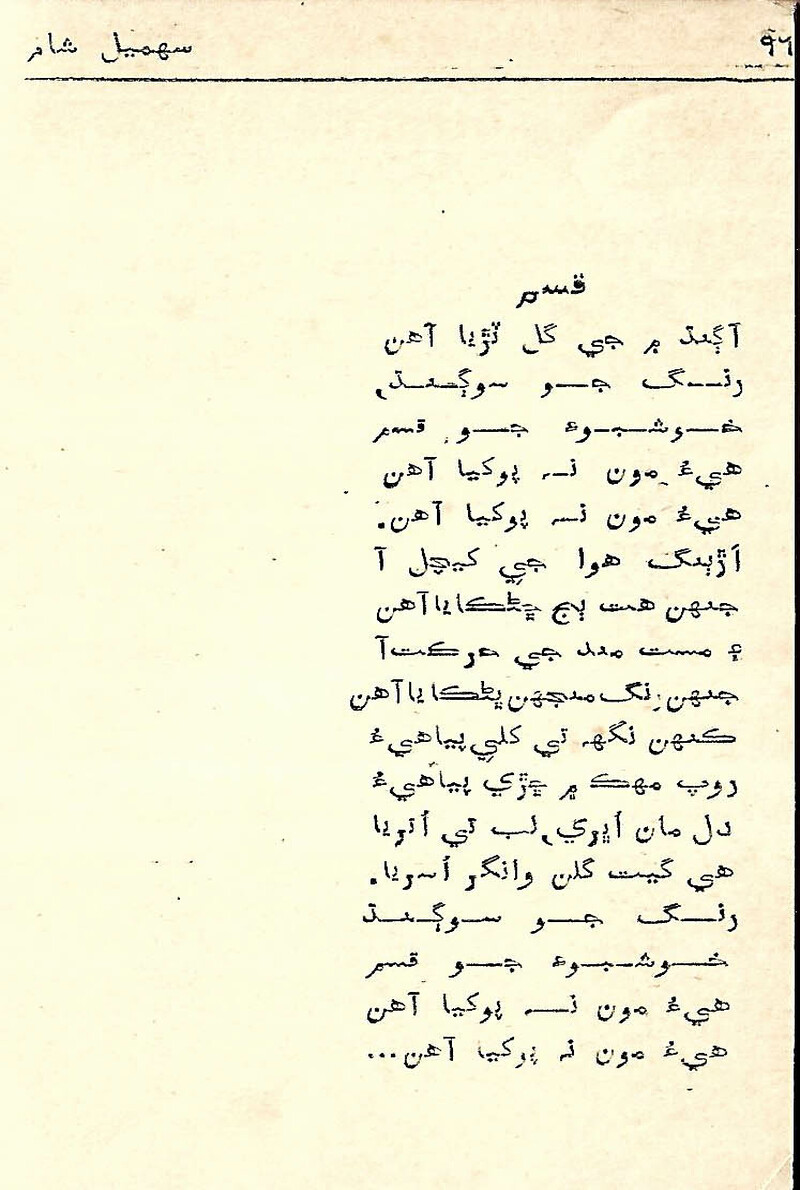 ٩٦ سهميل شام
قسم
آڳنڌ ۾ جي گل ٽڙيا آهن
رنگ جو سوڳنڌ،
خوشبوءَ جو قسم
هيءُ مون نہ پوکيا آهن
هيءُ مون نہ پوکيا آهن.
اَڙٻنگ هوا جي کيچل آ
جنهن هت ٻج ڇڻڪايا آهن
۽ مست مند جي حرڪت آ
جنهن رنگ منجهن ڀڻڪايا آهن
ڪنهن نگهہ تي کلي پيا هيءُ
روپ مهڪ ۾ ڇڙي پيا هيءُ
دل مان اُڀري، لب تي اُتريا
هي گيت گلن وانگر اُسريا.
رنگ جو سوڳنڌ
خوشبوءَ جو قسم
هيءُ مون نہ پوکيا آهن
هيءُ مون نہ پوکيا آهن...